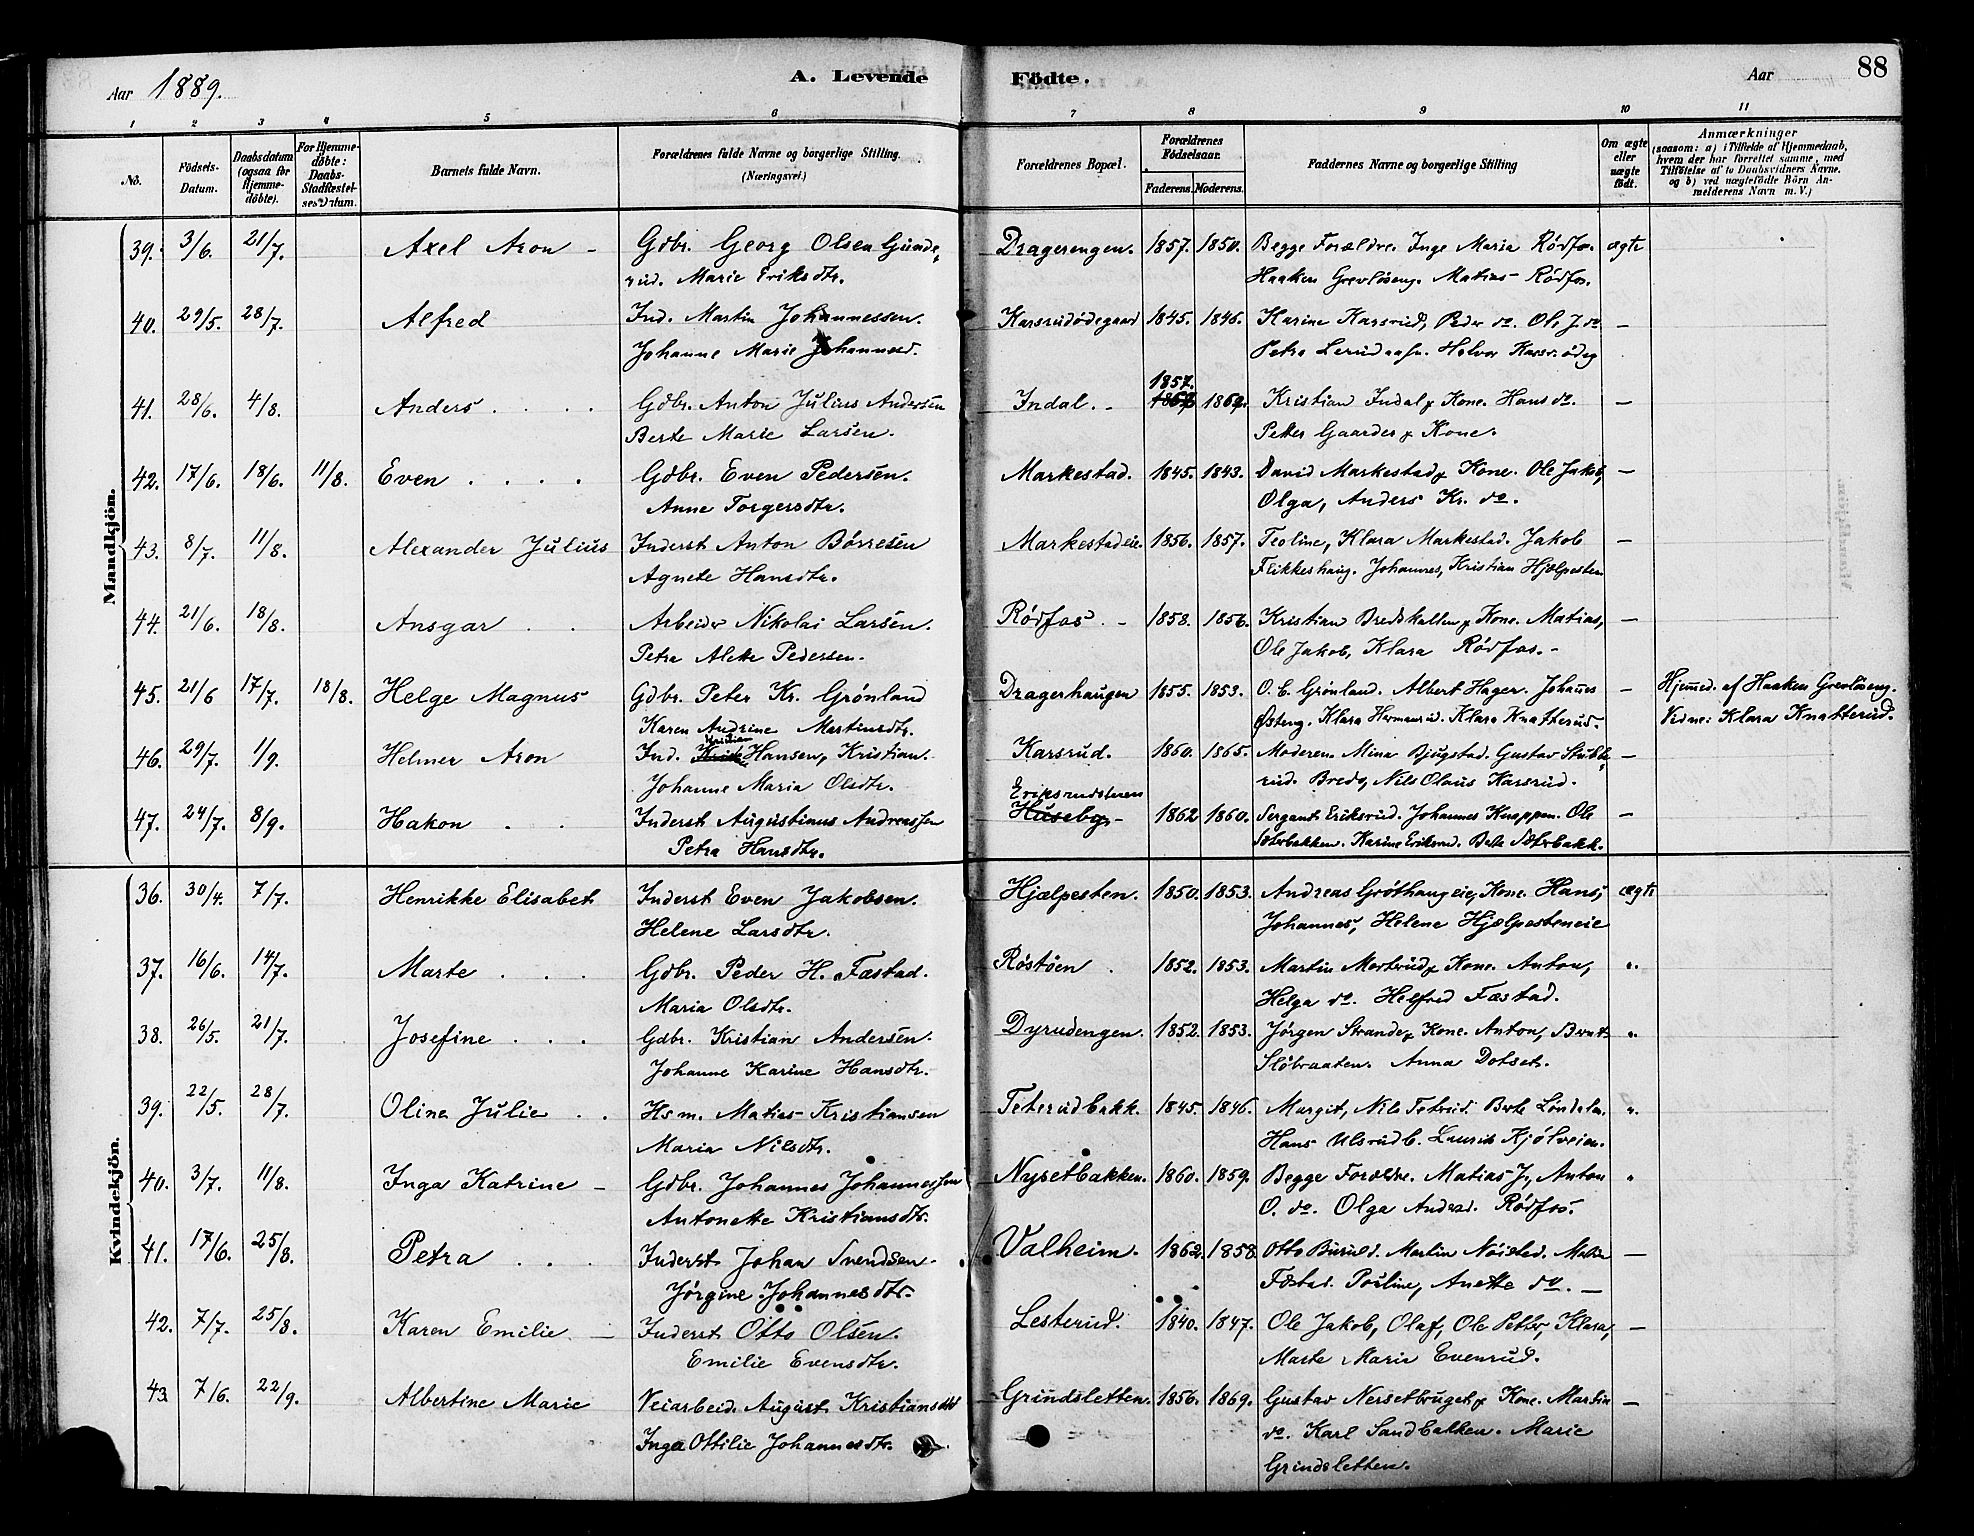 Aar 1889.
A. Levende
Födte.
Aar
88
1 2 3 4 5 6 7 8 9 10 11
No.
Födsels-Datum.
Daabsdatum (ogsaa for Hjemme-döbte).
For Hjemme-döbte: Daabs-Stadfæstel-ses Datum.
Barnets fulde Navn.
Forældrenes fulde Navne og borgerlige Stilling.
(Næringsvei.)
Forældrenes Bopæl.
Forældrenes Födselsaar.
Faderens. Moderens.
Faddernes Navne og borgerlige Stilling
Om ægte eller uægte födt.
Anmærkninger
(saasom: a) i Tilfælde af Hjemmedaab,
hvem der har forrettet samme, med
Tilföielse af to Daabsvidners Navne.
og b) ved uægtefödte Börn An-
melderens Navn m. V.)
Mandkjön.
39. 3/6. 21/7. Axel Aron - Gdbr. Georg Olsen Gunde, Dragerengen. 1857. 1850. Begge Forældre. Inge Marie Rödfos. ægte
rud. Marie Eriksdtr. Haaken Grevlöseng. Matias Rödfos.
40. 29/5. 28/7. Alfred Ind. Martin Johannessen. Karsrudödegaard 1845. 1846. Karine Karsrud, Peder do. Ole J. do. —
Johanne Marie Johannesd. Petra
41. 28/6. 4/8. Anders . . . . Gdbr. Anton Julius Andersen Indal. - 1857. 1869. Kristian Indal & Kone. Hans do. —
Berte Marie Larsen. Petter Gaarder & Kone.
42. 17/6. 18/6. 11/8. Even . . . . Gdbr. Even Pedersen. Markestad. 1845. 1843. David Markestad & Kone. Ole Jakob, —
Anne Torgersdtr. Olga, Anders Kr. do.
43. 8/7. 11/8. Alexander Julius Inderst Anton Börresen Markestadeie. 1856. 1857. Teoline, Klara Markestad. Jakob —
Agnete Hansdtr. Flikkeshaug. Johannes, Kristian Hjælpesten
44. 21/6. 18/8. Ansgar . . Arbeider Nikolai Larsen. Rödfos. - 1858. 1856. Kristian Bredhallen & Kone. Matias, —
Petra Alette Pedersen. Ole Jakob, Klara Rödfos. -
45. 21/6 17/7. 18/8. Helge Magnus Gdbr. Peter Kr. Grönland Dragerhaugen 1855. 1853. O. E. Grönland. Albert Hager. Johanes — Hjemmed. af Haaken Grevlöseng.
Karen Andrine Martinsdtr. Östeng. Klara Hermanrud. Klara Knatterud. Vidne: Klara Knatterud.
46. 29/7. 1/9. Helmer Aron Ind. Kristian Hansen, Kristian. Karsrud. 1860. 1865. Moderen. Mina Bjugstad. Gustav Stubbe, —
Johanne Maria Olsdtr. rud. Brede, Nils Olaus Karsrud.
Eriksrudsteren
47. 24/7. 8/9. Hakon . . Inderst Augustinus Andreassen Huseby. - 1862 1860. Sergeant Eriksrud. Johannes Knappen. Ole —
Petra Hansdtr. Söterbakken. Karine Eriksrud. Berte Söterbakk.
Kvindekjön.
36. 30/4. 7/7. Henrikke Elisabet Inderst Even Jakobsen. Hjælpesten. 1850. 1853. Andreas Gröthaugeie, Kone. Hans, ægte
Helene Larsdtr. Johannes, Helene Hjælpesteneie
37. 16/6. 14/7. Marte . . . Gdbr. Peder H. Fæstad. Röstöen . 1852. 1853. Martin Morterud & Kone. Anton, "
Maria Olsdtr. Helga do. Helfred Fæstad.
38. 26/5. 21/7. Josefine . . . Gdbr. Kristian Andersen. Dyrudengen. 1852. 1853. Jörgen Strande & Kone. Anton, Bernt "
Johanne Karine Hansdtr. Slöbraaten. Anna Dotset.
39. 22/5. 28/7. Oline Julie . . Hsm. Matias Kristiansen Teterudbakk. 1845. 1846. Margit, Nils Teterud. Berte "
Maria Nilsdtr. Hans Ulsrudb. Laurits Kjölveien.
40. 3/7. 11/8. Inga Katrine - Gdbr. Johannes Johannessen Nysetbakken. 1860. 1859. Begge Forældre. Matias J., Anton "
Antonette Kristiansdtr. O. do. Olga Andersd. Rödfos.
41. 17/6. 25/8. Petra . . . Inderst Johan Svendsen. Valheim. 1862. 1858 Otto Burud. Martin Nöisted. —
Jörgine Johannesdtr. Fæstad. Pouline, Anette do. —
42. 7/7. 25/8. Karen Emilie — Inderst Otto Olsen. Lesterud. 1840. 1847. Ole Jakob, Olaf, Ole Petter, Klara, —
Emilie Evensdtr. Marte Marie Evenrud.
43. 7/6. 22/9. Albertine Marie Veiarbeid. August Kristiansen Grindsletten. 1856. 1869. Gustav Nersetbruget & Kone. Martin —
Inga Ottilie Johannesdtr. do. Karl Sandbakken. Marie
Grindsletten.